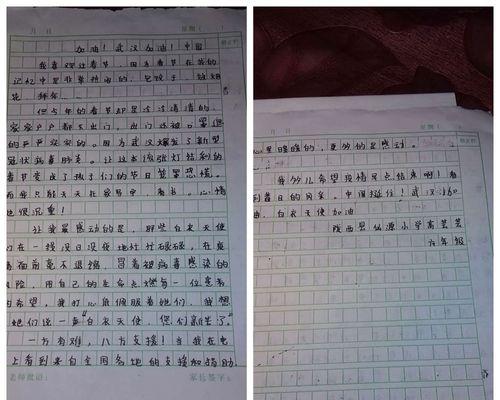 月 日 星期（ ）
加油！武汉加油！中国
我喜欢过春节，因为春节在我的
记忆中是非常热闹的，包饺子
花 拜年
但今年的春节却是冷冷清清的，
家家户户都不出门，出门还被口罩
的严严实实的。因为武汉爆发了新型
冠状病毒肺炎。让这本该张灯结彩的
春节变成了孩子们的节日笼罩恐慌。
而我只能天天在家写字 看书。心情
也很沉重！
让我最感动的是，那些白衣天使
们在一线没日没夜地
毫不退缩，冒着被病毒感染的
风险，用自己的生命点燃每一位患者
的希望，我打心底佩服着她们，我想
她们说一声“白衣天使，您们辛苦了。”
一方有难，八方支援！当我在电
上看到来自全国各地的支援和捐助
老师批语： 家长签字：
心里暖暖的，更多的是感动。
我多么希望疫情早点结束啊！看
昔日的风采。中国挺住！武汉加
油，白衣天使加油
陇西县仙源小学
六年级